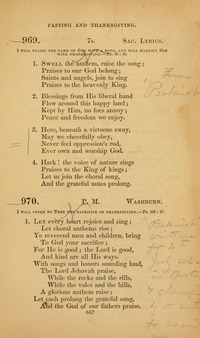 FASTING AND THANKSGIVING.
969. 7s. SAC. LYRICS.
I WILL PRAISE THE NAME OF GOD WITH A SONG, AND WILL MAGNIFY HIM
WITH THANKSGIVING.—Ps. 69: 30.
1. SWELL the anthem, raise the song;
Praises to our God belong;
Saints and angels, join to sing
Praises to the heavenly King.
2. Blessings from His liberal hand
Flow around this happy land;
Kept by Him, no foes annoy;
Peace and freedom we enjoy.
3. Here, beneath a virtuous sway,
May we cheerfully obey,
Never feel oppression's rod,
Ever own and worship God.
4. Hark! the voice of nature sings
Praises to the King of kings;
Let us join the choral song,
And the grateful notes prolong.
970. P. M. WASHBURN.
I WILL OFFER TO THEE THE SACRIFICE OF THANKSGIVING.—Ps. 116: 17.
1. LET every heart rejoice and sing;
Let choral anthems rise;
Ye reverend men and children, bring
To God your sacrifice;
For He is good; the Lord is good,
And kind are all His ways.
With songs and honors sounding loud,
The Lord Jehovah praise,
While the rocks and the rills,
While the vales and the hills,
A glorious anthem raise;
Let each prolong the grateful song,
And the God of our fathers praise.
667